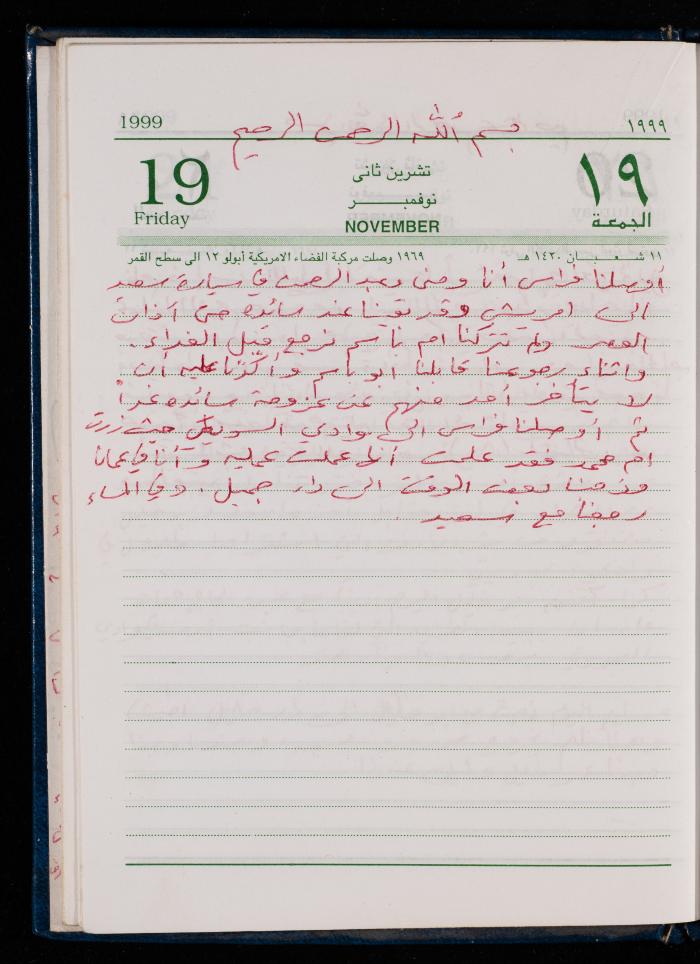 1999
بسم الله الرحمن الرحيم
١٩٩٩
19
Friday
تشرين ثانى
نوفمبر
NOVEMBER
١٩
الجمعة
١١ شعبان ١٤٢٠ هـ
١٩٦٩ وصلت مركبة الفضاء الامريكية أبولو ١٢ الى سطح القمر
أوصلنا فراس أنا ومنى وعبد الرحمن في سيارة سعيد
الى وقد بقينا عند سائده حتى آذان
العصر ولم تتركنا ام باسم نرجع قبل الغداء .
واثناء رجوعنا قابلنا ابو باسم وأكدنا عليه أن
لا يتأخر أحد منهم عن عزومة سائده غداً
ثم أوصلنا فراس الى وادي حيث زرت
ام محمد فقد علمت أنها عملت عمليه وأنا في عمان
وذهبنا بعض الوقت الى دار جميل . وفي المساء
رجعنا مع سعيد .